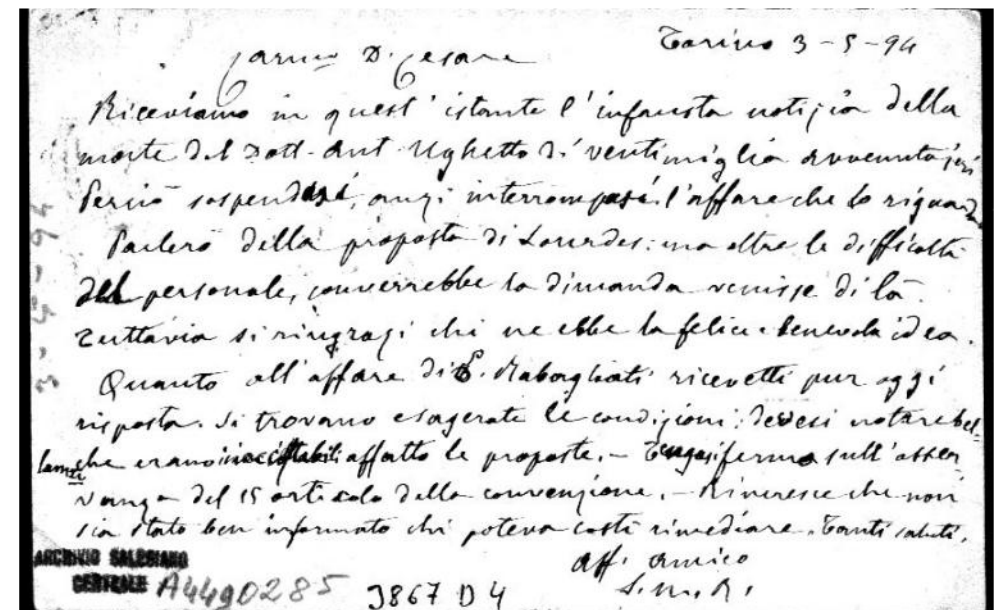 Torino 3-5-94
Carmo D. Cesare
Riceviamo in quest'istante l'infausta notizia della
morte del Dott. Ant. Ughetto di Ventimiglia avvenuta jeri
Perciò sospenderà, anzi interromperà l'affare che lo riguarda
Parlerò della proposta di Lourdes: ma oltre le difficoltà
del personale, converrebbe la dimanda venisse di là.
Tuttavia si ringrazi chi ne ebbe la felice e benevola idea.
Quanto all'affare di Rabagliati ricevetti pur oggi
risposta. Si trovano esagerate le condizioni: devesi notare bel-
che erano inaccettabili affatto le proposte. - Tengasi fermo sull'osser-
vanza del 15 articolo della convenzione. - Rincresce che non
sia stato ben informato chi poteva costì rimediare. Tanti saluti.
Aff. amico
ARCHIVIO SALESIANO
CENTRALE A4490285
3867 D 4